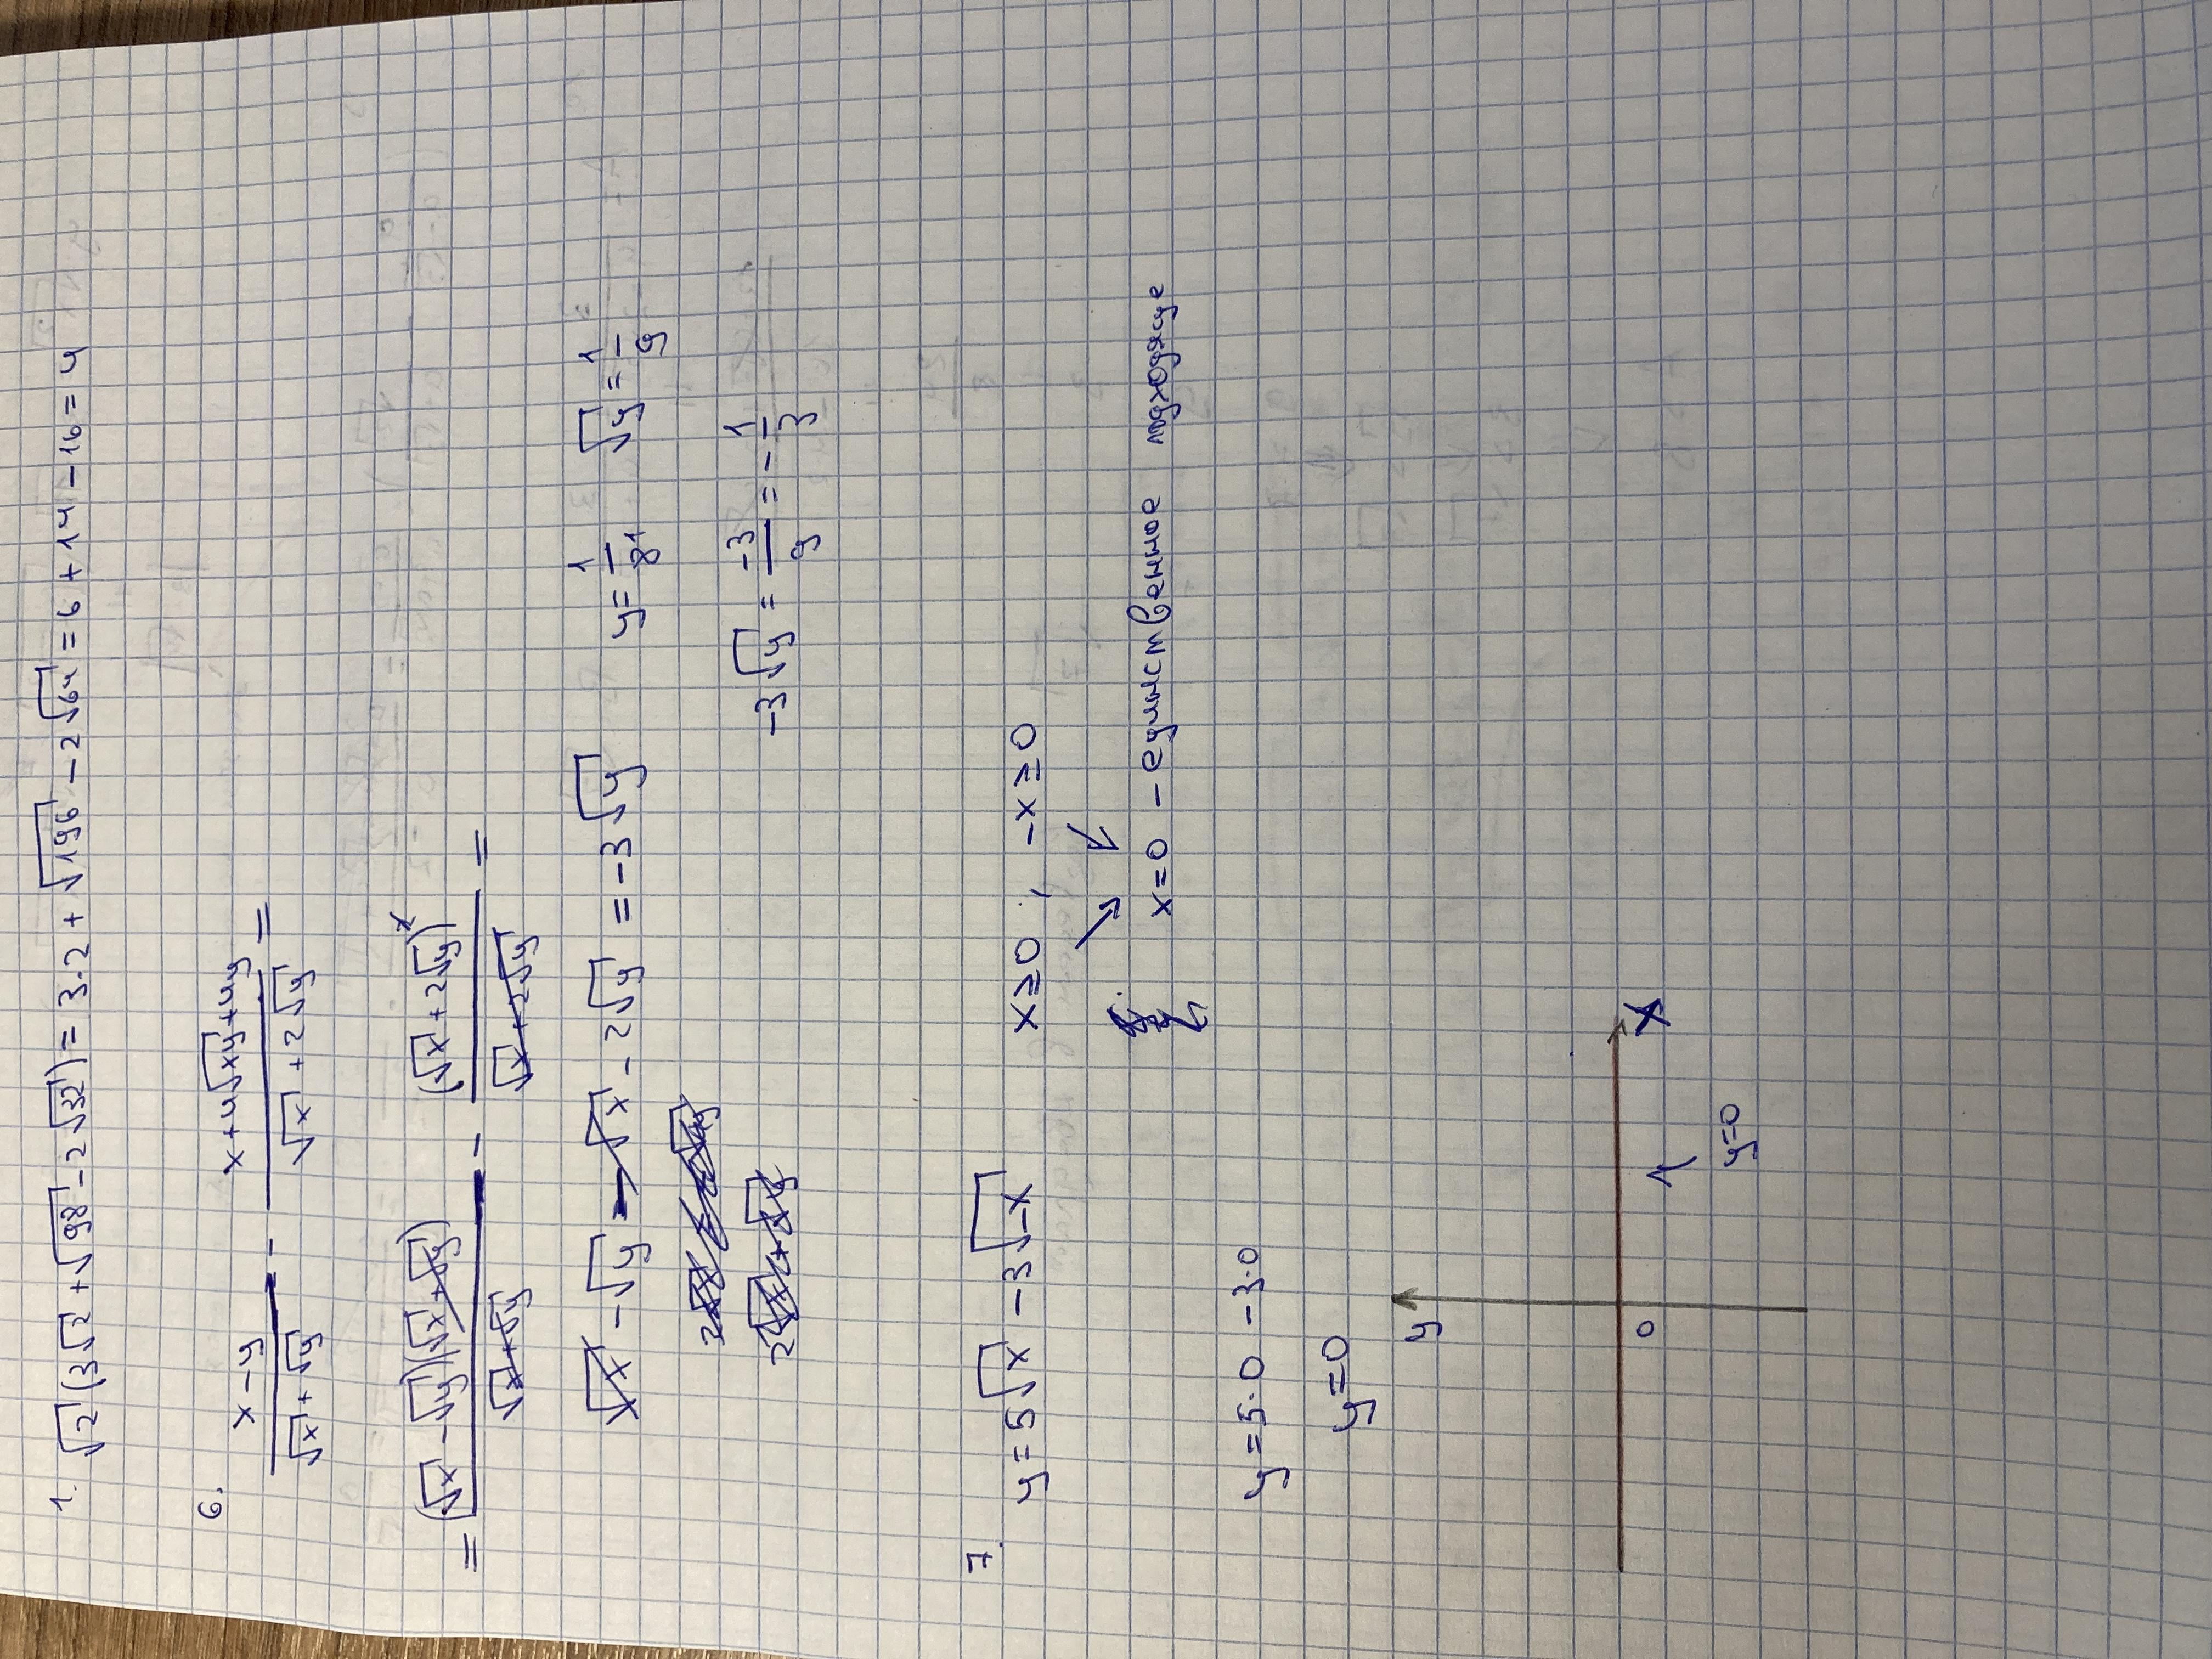 1. √2(3√2+√98-2√32)=3·2+√196-2√64=6+14-16=4
6. (x-y)/(√x+√y) - (x+4√xy+4y)/(√x+2√y) =
= (√x-√y)(√x+√y)/(√x+√y) - (√x+2√y)²/(√x+2√y) =
√x-√y-√x-2√y=-3√y y=1/81 √y=1/9
-3√y=-3/9=-1/3
7. y=5√x-3√-x x≥0, -x≥0
x=0 - единственное подходяще
y=5·0-3·0
y=0
y
0 x
y=0